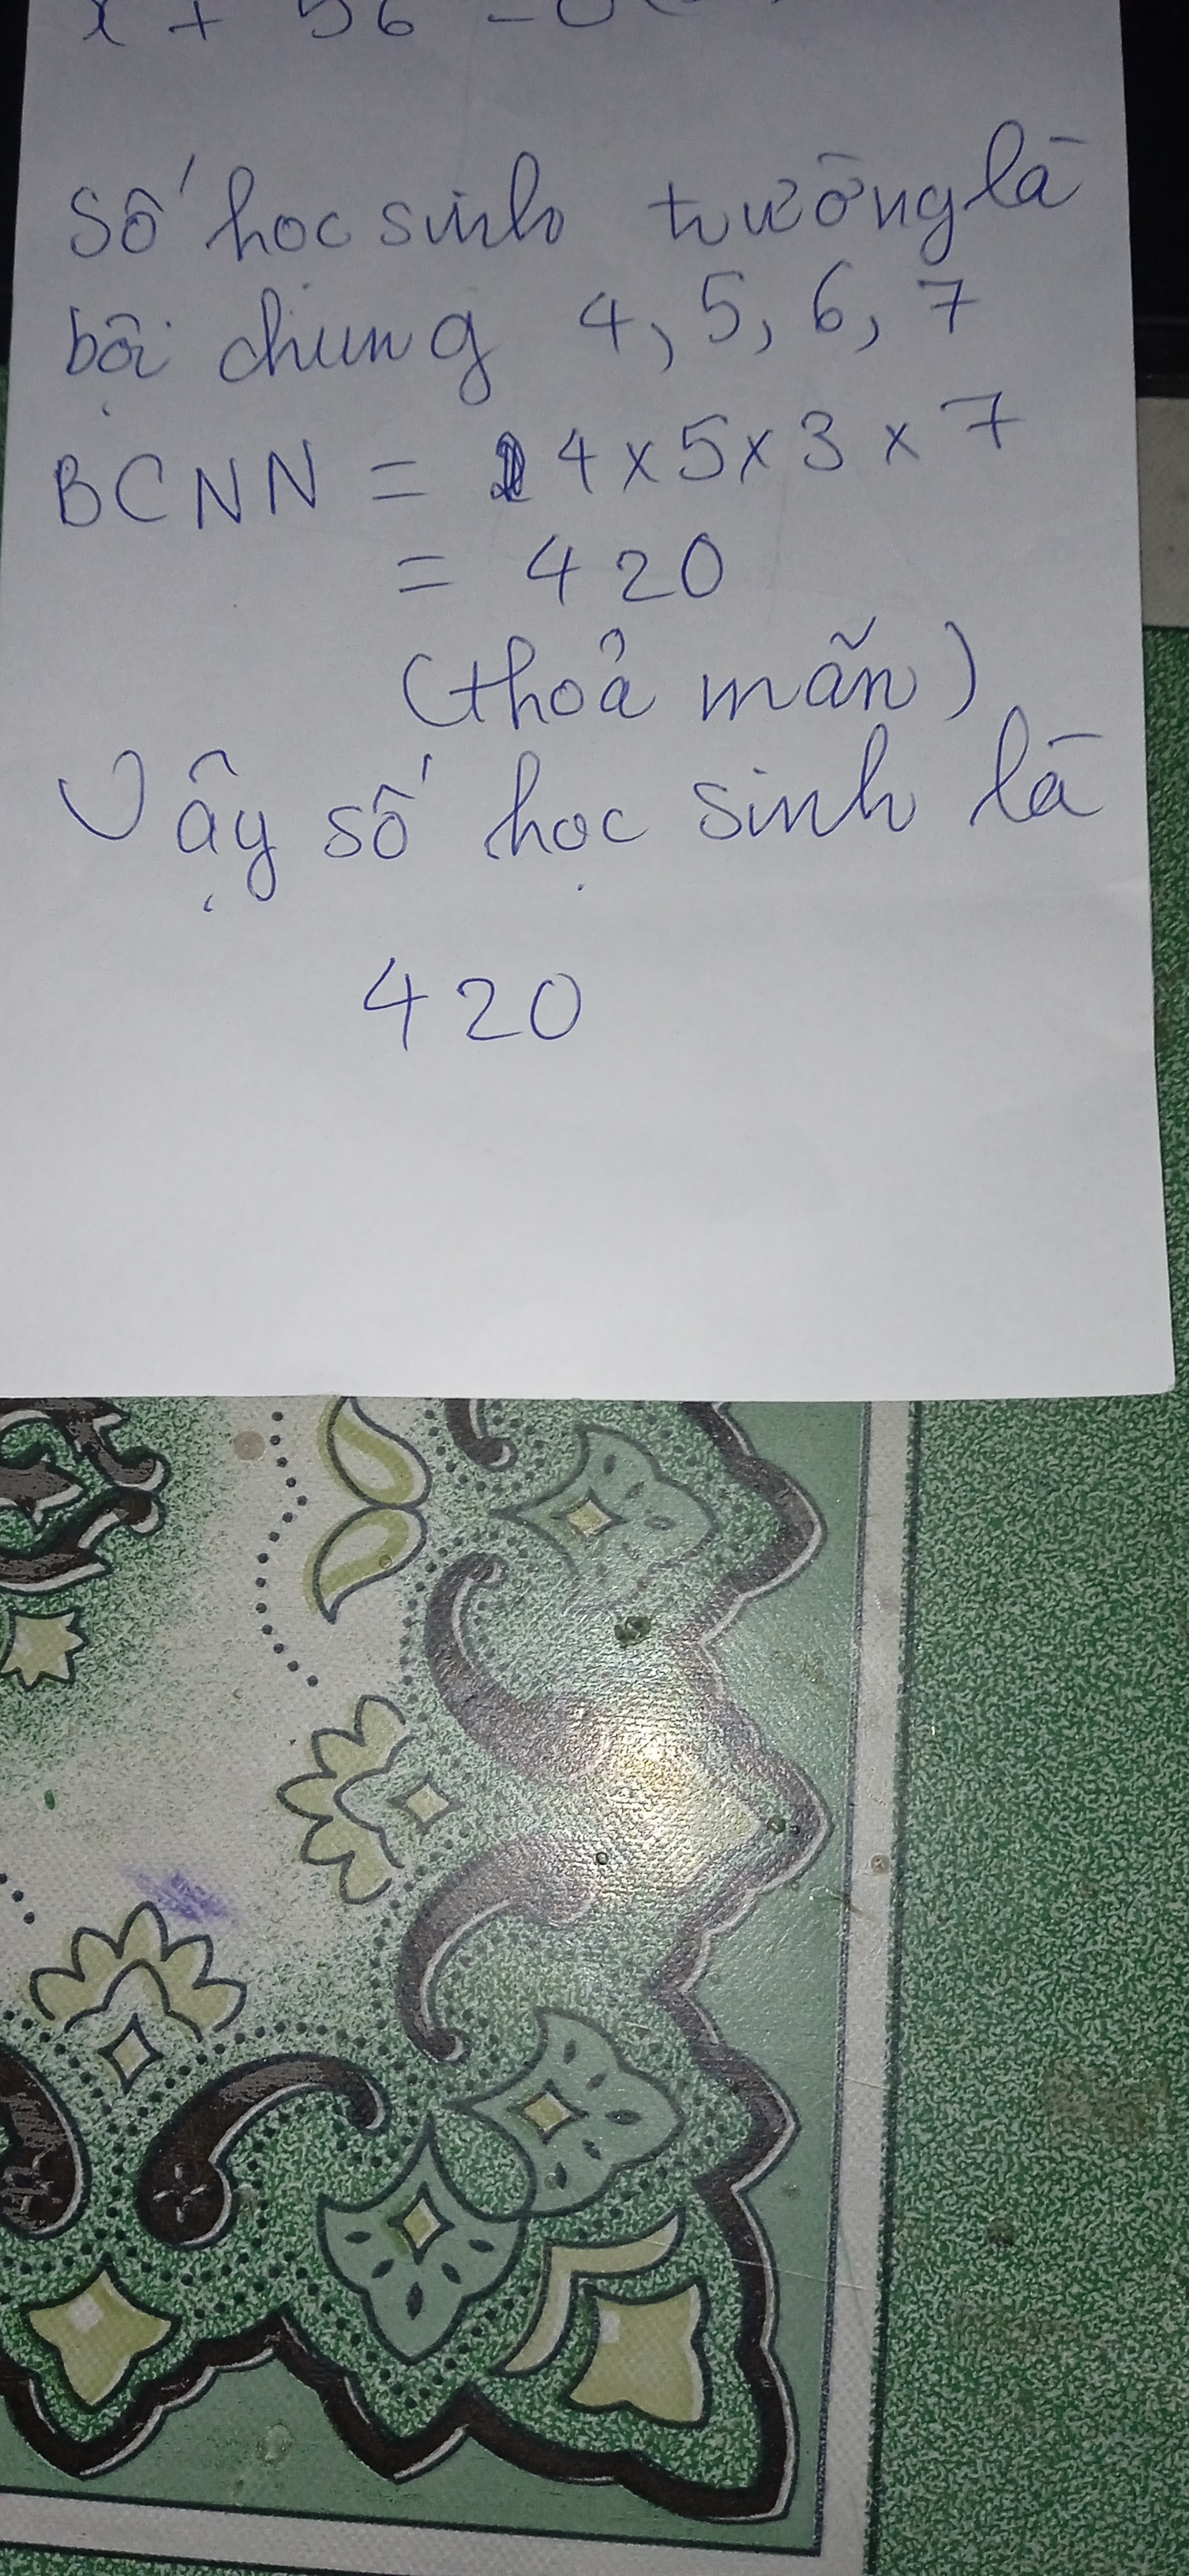 x + 56
Số học sinh trường là
bội chung 4, 5, 6, 7
BCNN = 4 x 5 x 3 x 7
= 420
(thoả mãn)
Vậy số học sinh là
420